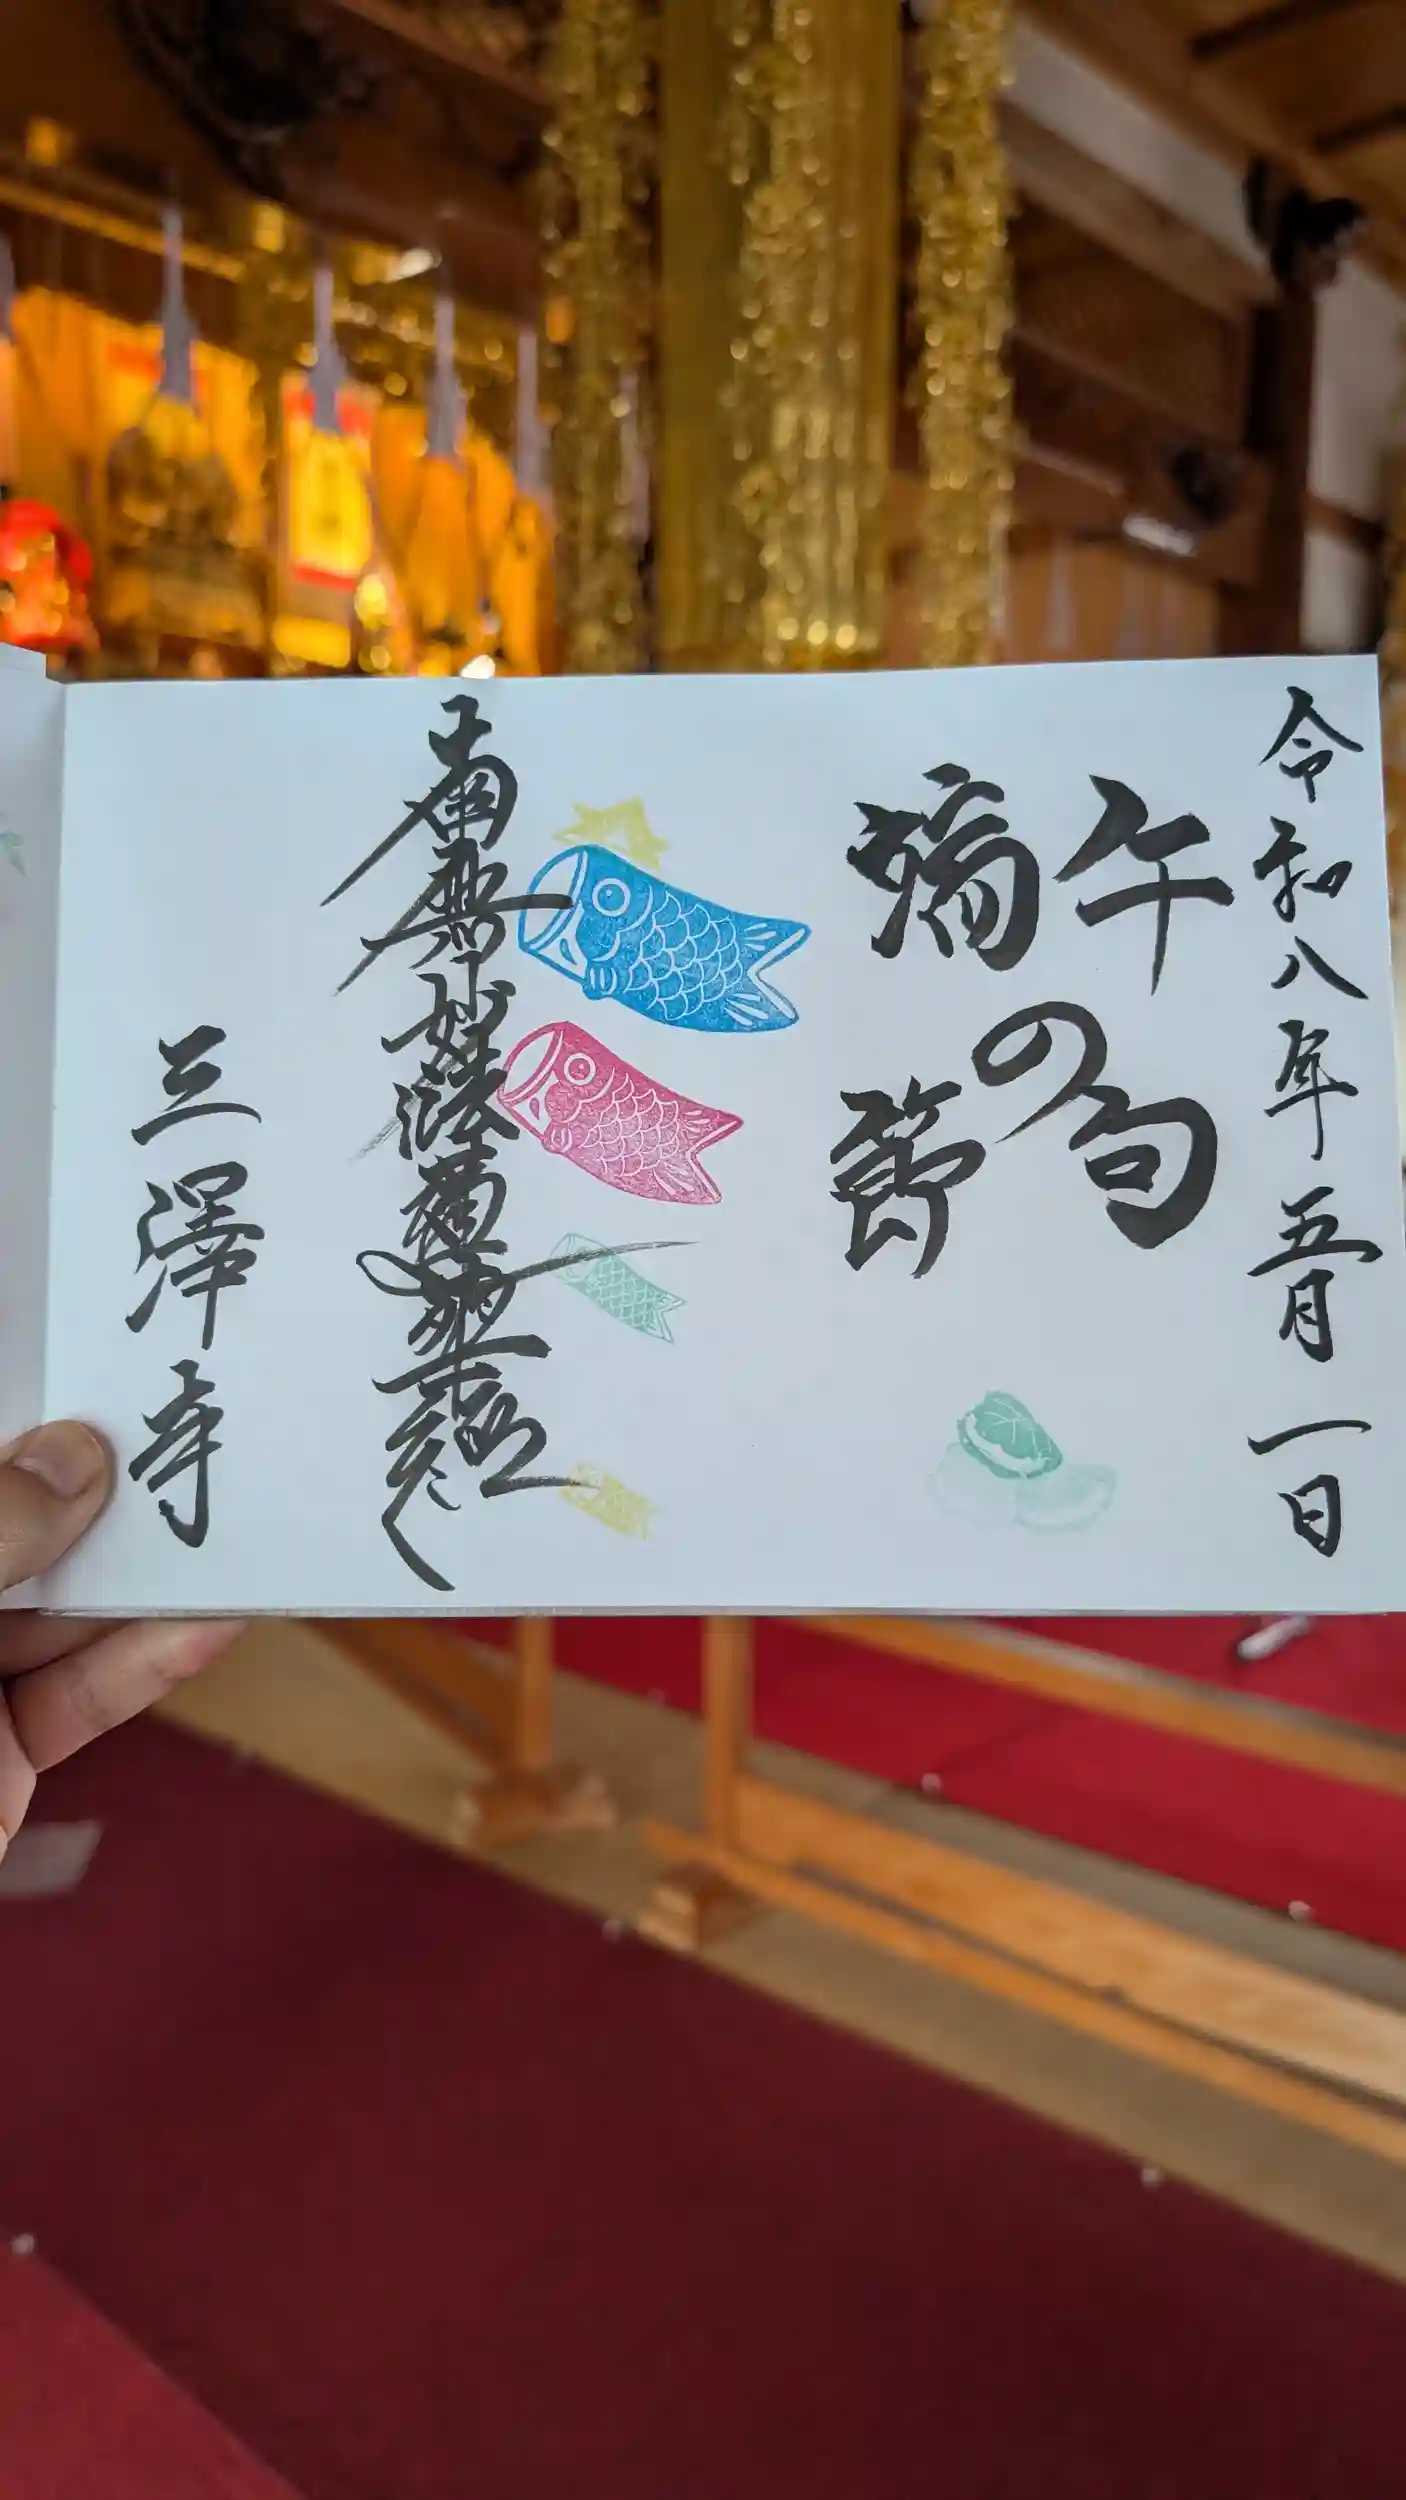 令和八年五月一日
端午の節句
南無妙法蓮華経
三澤寺